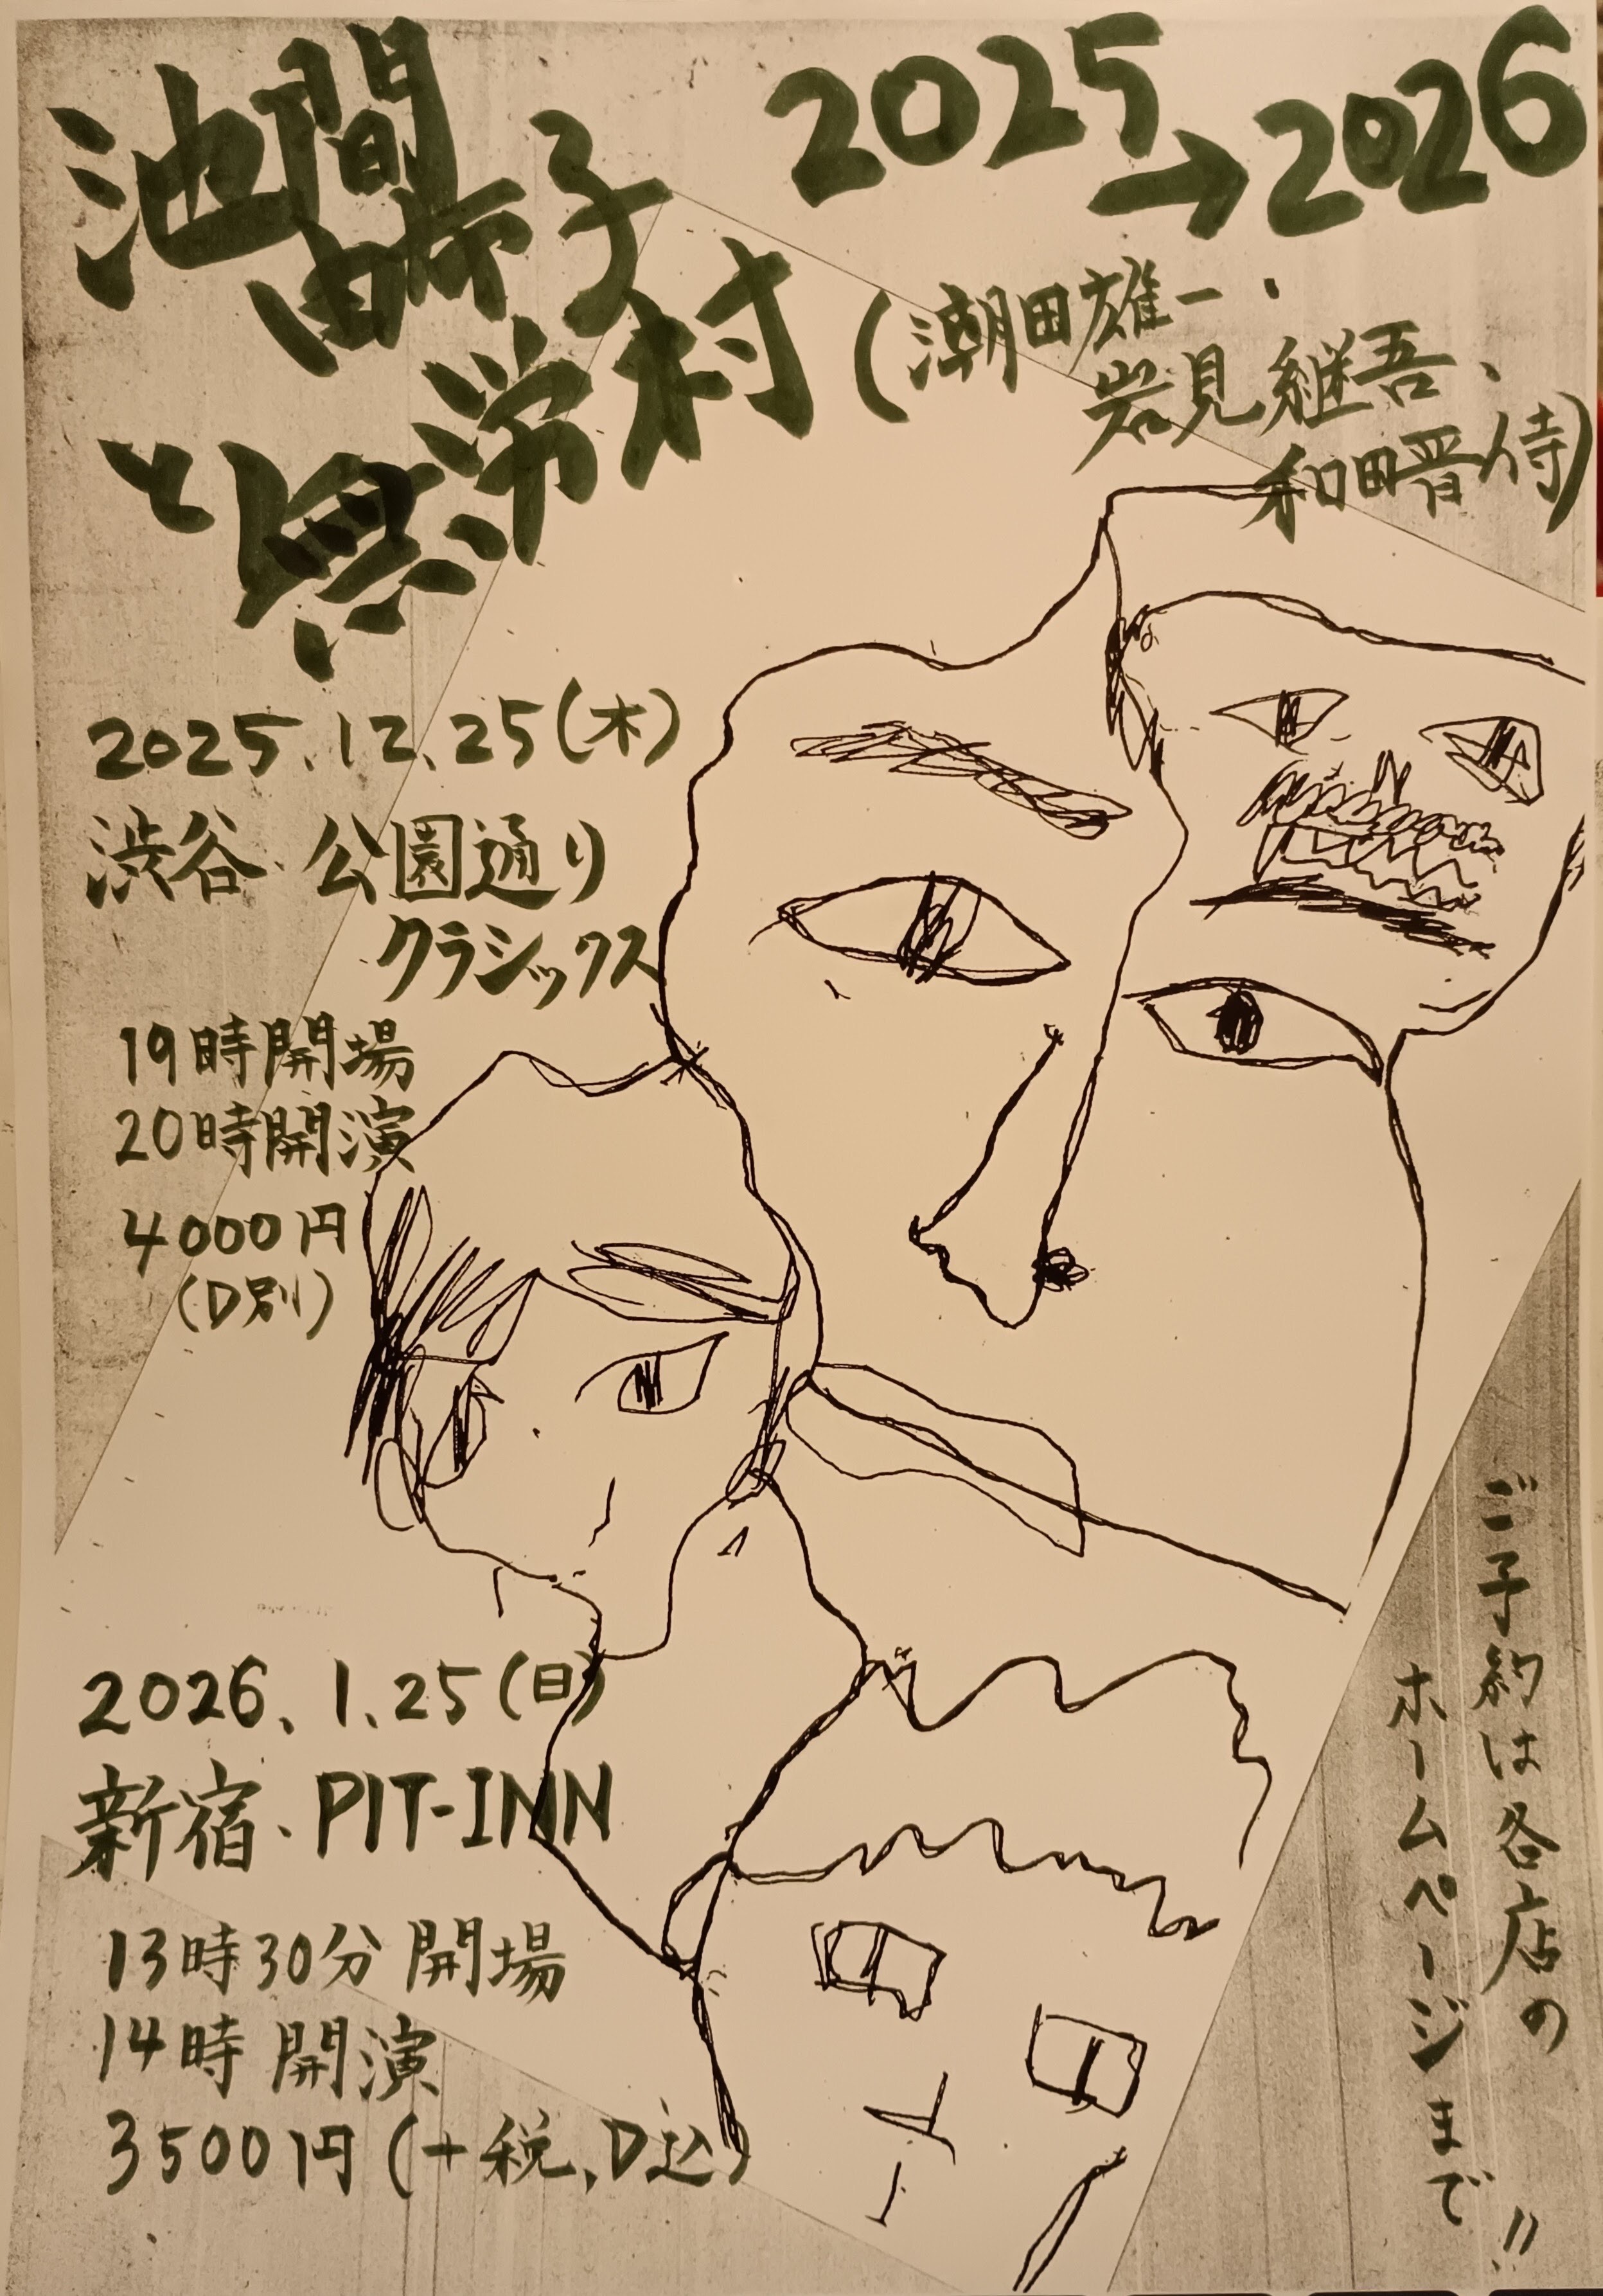 池間由布子
と無労村
2025→2026
(潮田雄一・
岩見継吾、
和田晋侍)
2025.12.25(木)
渋谷 公園通り
クラシックス
19時開場
20時開演
4000円
(D別)
2026.1.25(日)
新宿・PIT-INN
13時30分開場
14時開演
3500円(+税、D込)
ご予約は各店の
ホームページまで!!